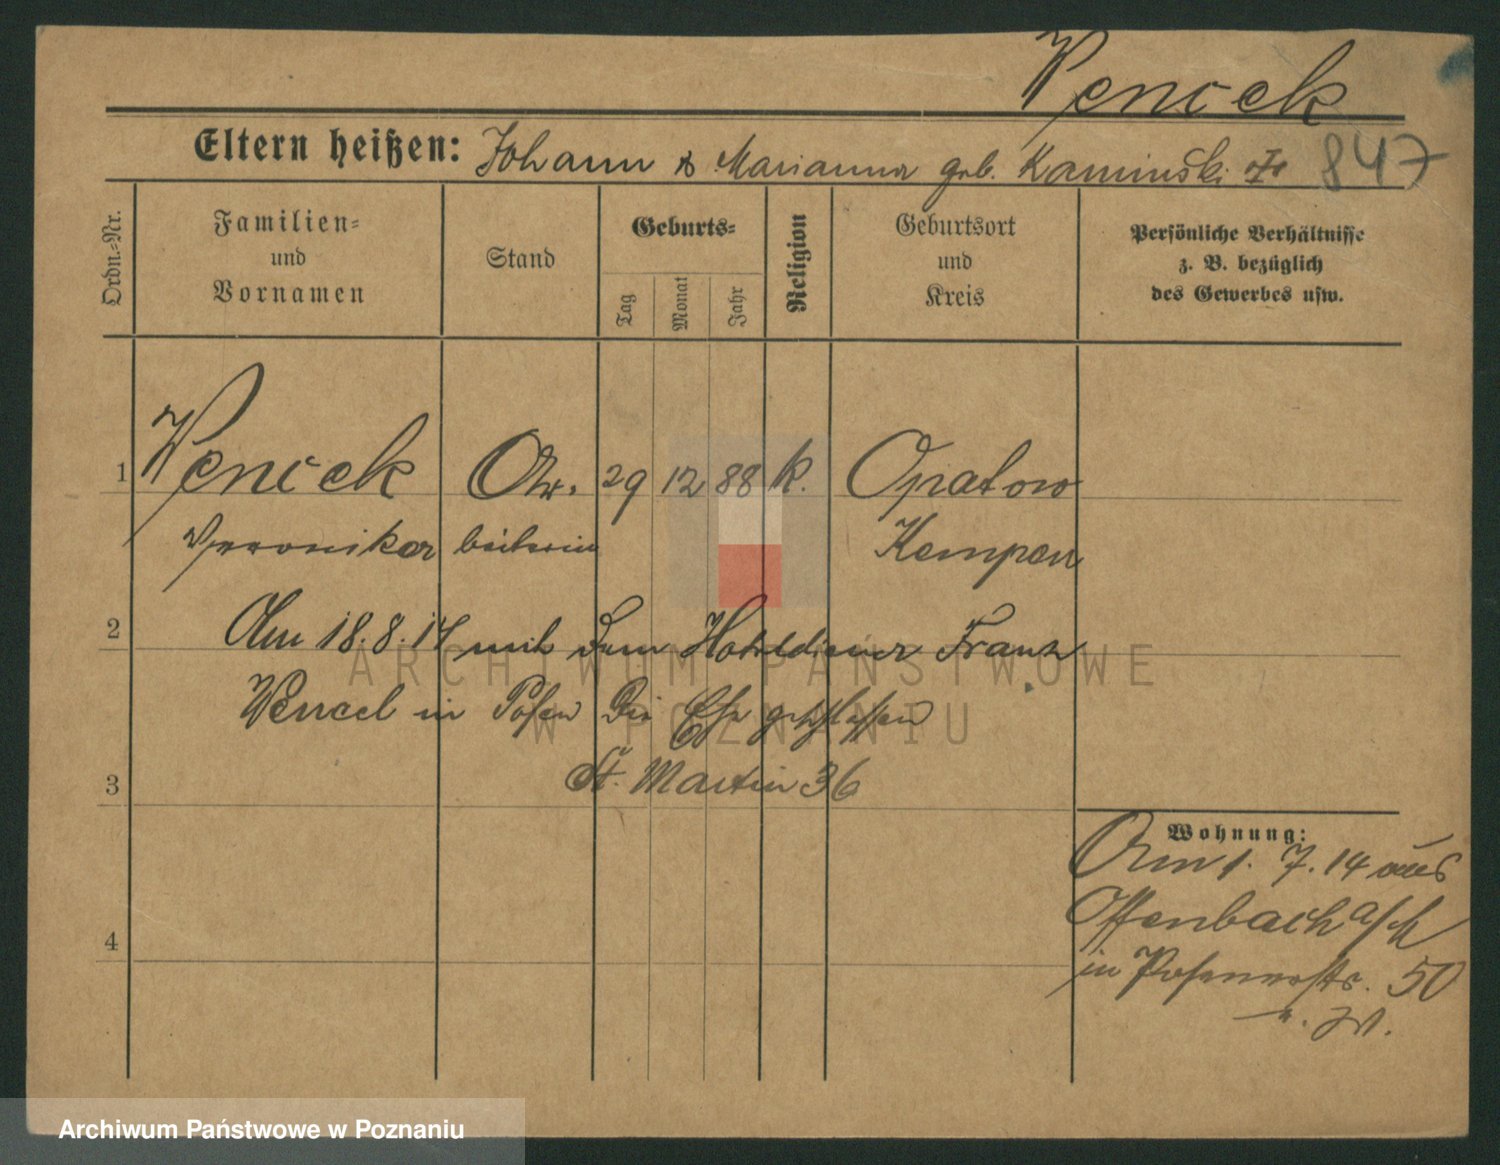 Wencek
Eltern heißen: Johann & Marianna geb. Kaminski 847
Ordn.=Nr.
Familien= und Vornamen
Stand
Geburts=
Tag
Monat
Jahr
Religion
Geburtsort und Kreis
Persönliche Verhältnisse z. B. bezüglich des Gewerbes usw.
1 Wencek Ar. 29 12 88 k. Opatow
Veronika beiterin Kempen
2 Am 18.8.14 mit dem Hoteldiener Franz
Wencel in Posen die Ehe geschlossen
3 St. Martin 36
Wohnung:
Am 1. 7. 14 aus
Offenbach
4 in Posenerstr. 50
ARCHIWUM PAŃSTWOWE
W POZNANIU
Archiwum Państwowe w Poznaniu